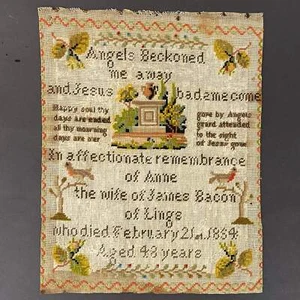 Angels Beckoned
me away
and Jesus bade me come
Happy soul thy
days are ended
al thy mourning
days are over
gone by Angels
guard attended
to the sight
of Jesus gone
In affectionate remembrance
of Anne
the wife of James Bacon
of Lings
who died February 21st 1854
Aged 48 years